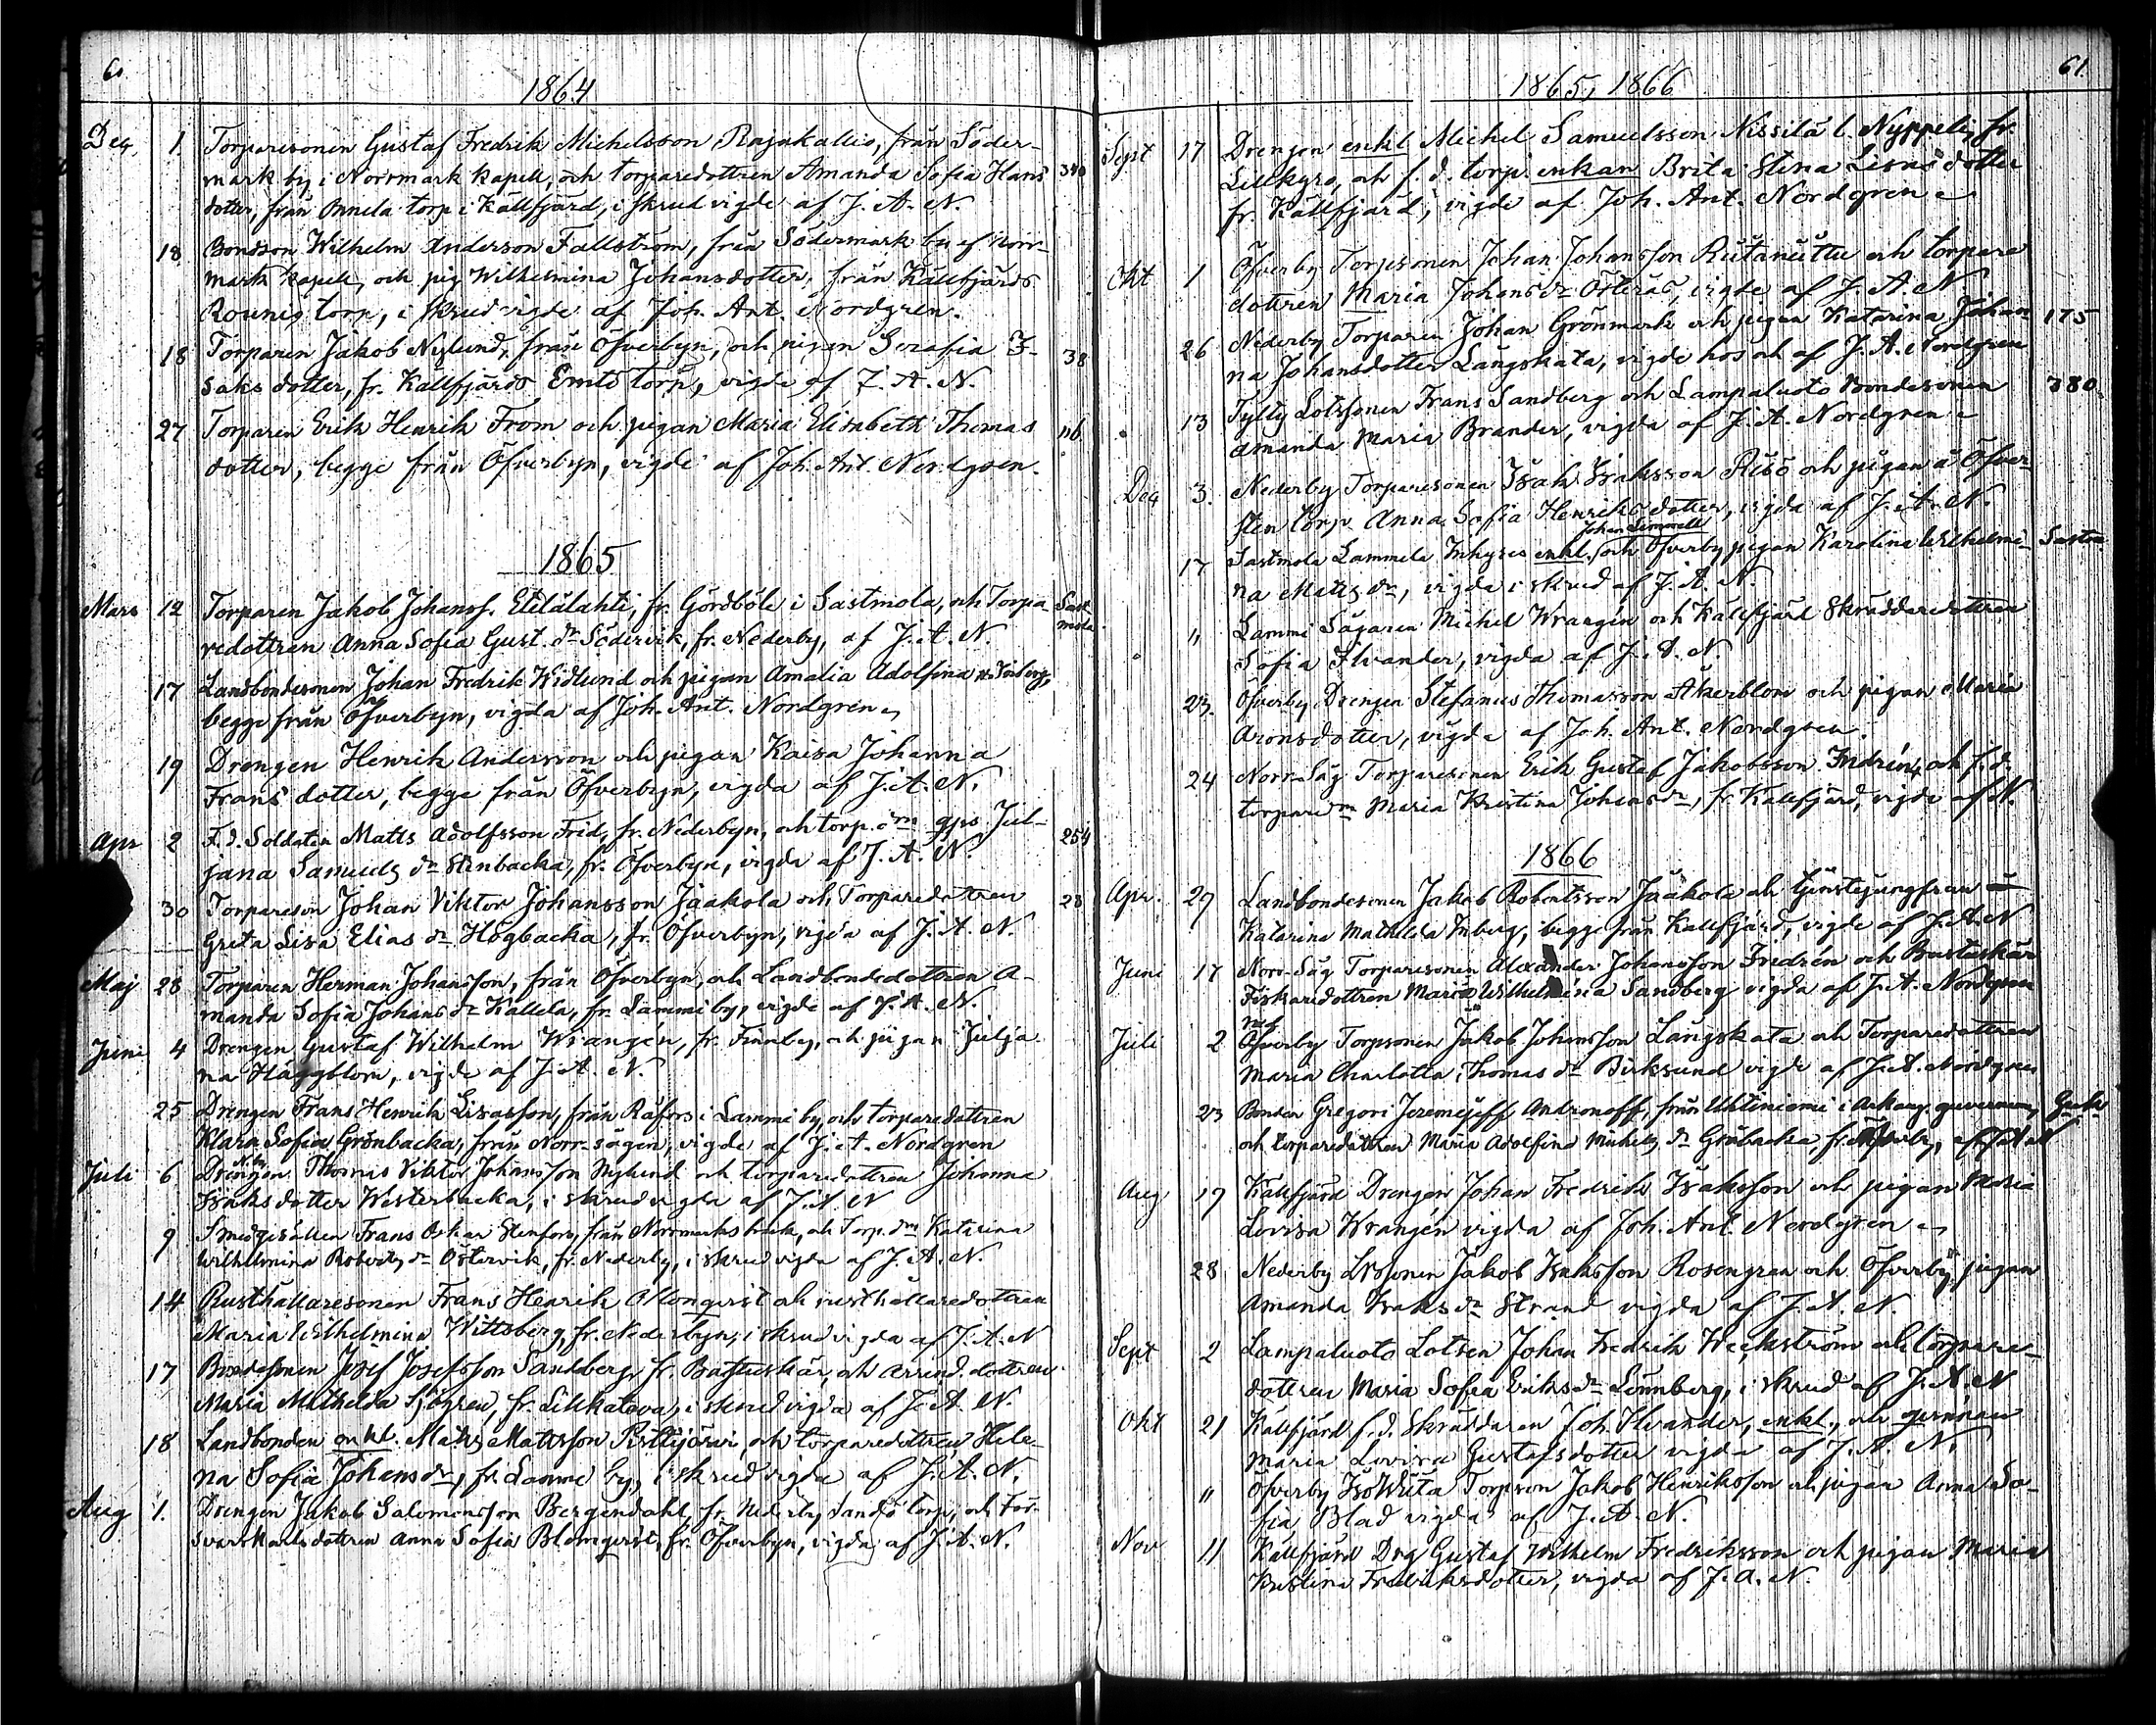 60
1864
Dec. 1. Torparesonen Gustaf Fredrik Michelsson Rajakallio, från Söder-
mark by i Norrmark kapell, och torparedottren Amanda Sofia Hans 340
dotter, från Onnela torp i Källfjärd, i skrud vigde af J. A. N.
18 Bondson Wilhelm Anderson Fallström, från Södermark by af Norr-
mark kapell, och pig Wilhelmina Johansdotter, från Källfjärds
Rounis torp, i skrud vigde af Joh. Ant. Nordgren.
18 Torparen Jakob Nylund, från Öfverbyn, och pigan Serafia I- 38
saks dotter, fr. Källfjärds Emts torp, vigde af J. A. N.
27 Torparen Erik Henrik From och pigan Maria Elisabeth Thomas 116
dotter, begge från Öfverbyn, vigde af Joh. Ant. Nordgren.
1865
Mars 12 Torparen Jakob Johanss. Etelälahti, fr. Gördböle i Sastmola, och Torpa Sast
redottren Anna Sofia Gust. dr Södervik, fr. Nederby, af J. A. N. mola
17 Landbondesonen Johan Fredrik Widlund och pigan Amalia Adolfina
begge från Öfverbyn, vigda af Joh. Ant. Nordgren
19 Drengen Henrik Andersson och pigan Kaisa Johanna
Frans dotter, begge från Öfverbyn, vigda af J. A. N.
Apr 2 F. d. Soldaten Matts Adolfsson Frid, fr. Nederbyn, och torp. Jul- 254
jana Samuels dr Stenbacka, fr. Öfverbyn, vigda af J. A. N.
30 Torpareson Johan Viktor Johansson Jaakola och Torparedottren 28
Greta Lisa Elias dr Högbacka, fr. Öfverbyn, vigda af J. A. N.
Maj 28 Torparen Herman Johansson, från Öfverbyn, och Landbondedottren A-
manda Sofia Johans dr Kallela, fr. Lammi by, vigde af J. A. N.
Juni 4 Drengen Gustaf Wilhelm Wrangén, fr. Finnby, och pigan Julja
na Häggblom, vigde af J. A. N.
25 Drengen Frans Henrik Lisasson, från Råfors i Lammi by, och torparedottren
Klara Sofia Grönbacka, från Norr-sågen, vigde af J. A. Nordgren
Juli 6 Drengen Thomas Viktor Johansson Nylund och torparedottren Johanna
Isaks dotter Westerbacka, i skrud vigda af J. A. N
9 Smedgesällen Frans Oskar Stenfors, från Norrmarks bruk, och Torp. dm Katarina
Wilhelmina Roberts dr Östervik, fr. Nederby, i skrud vigda af J. A. N.
14 Rusthållaresonen Frans Henrik Blomqvist och rusthållaredottren
Maria Wilhelmina Wittsberg, fr. Nederbyn, i skrud vigda af J. A. N
17 Bondesonen Josef Josefsson Sandberg, fr. Bastuskär, och arrend. dottren
Maria Mathelda Sjögren, fr. Lillkatava, i skrud vigda af J. A. N.
18 Landbonden enkl. Matts Mattsson Risttjärvi, och torparedottren Hele-
na Sofia Johans dr, fr. Lammi by, i skrud vigda af J. A. N.
Aug 1. Drengen Jakob Salomonsson Bergendahl, fr. Nederby Sandö torp, och För-
svarskarlsdottren Anna Sofia Blomqvist, fr. Öfverbyn, vigda af J. A. N.
61
1865, 1866
Sept 17 Drengen enkl Michel Samuelsson Nissilä l. Nyppeli, fr.
Lillkyro, och f. d. torp. enkan Brita Stina Lisas dotter
fr. Källfjärd, vigde af Joh. Ant. Nordgren
Okt 1 Öfverby Torpsonen Johan Johansson och torpare
dottren Maria Johans dr Österås, vigde af J. A. N.
26 Nederby Torparen Johan Grönmark och pigan Katarina Johan 175
na Johansdotter Långskata, vigde hos och af J. A. Nordgren
13 Tylty Lotssonen Frans Sandberg och Lampaluoto Bondesonen 380.
Amanda Maria Brander, vigda af J. A. Nordgren
Dec 3. Nederby Torparesonen Isak Isaksson Risö och pigan å Öfver-
sten torp Anna Sofia Henriks dotter, vigda af J. A. N.
17 Sastmola Lammela Inhyses enkl. och Öfverby pigan Karolina Wilhelmi- Sastm
na Matts dr, vigda i skrud af J. A. N.
" Lammi Sågaren Michel Wrangén och Källfjärd Skräddaredottren
Sofia Ilvander, vigda af J. A. N
23. Öfverby Drengen Stefanus Thomasson Åkerblom och pigan Maria
Aronsdotter, vigda af Joh. Ant. Nordgren.
24 Norr-Såg Torparesonen Erik Gustaf Jakobsson Indrén, och f. d.
torpare Maria Kristina Johans dr, fr. Källfjärd, vigde af N.
1866
Apr. 29 Landbondesonen Jakob Robertsson Jaakola och tjenstejungfrun
Katarina Mathilda Inberg, begge från Källfjärd, vigde af J. A. N
Juni 17 Norr-Såg Torparesonen Alexander Johansson Fridrén och Bastuskär
Fiskaredottren Maria Wilhelmina Sandberg vigda af J. A. Nordgren
Juli 2 Öfverby Torpsonen Jakob Johansson Långskata och Torparedottren
Maria Charlotta Thomas dr Birksund vigde af J. A. Nordgren
23 Bonden Gregori Jeremejeff Andronoff, från Uhtiniemi i Arkang. guvernem,
och torparedottren Maria Adolfina Michels dr Grönbacka, fr.
Aug 17 Källfjärd Drengen Johan Fredrik Isaksson och pigan Maria
Lovisa Wrangén vigda af Joh. Ant. Nordgren
28 Nederby Jakob Isaksson Rosengren och Öfverby pigan
Amanda Isaks dr Strand vigda af J. A. N.
Sept 2 Lampaluoto Lotsen Johan Fredrik Weckström och torpare-
dottren Maria Sofia Eriks dr Lönnberg, i skrud af J. A. N
Okt 21 Källfjärd f. d. Skräddaren Joh. Ilvander, enkl., och
Maria Lovisa Gustafsdotter vigda af J. A. N.
" Öfverby Torpson Jakob Henriksson och pigan Anna So-
fia Blad vigda af J. A. N.
Nov 11 Källfjärd Drg Gustaf Wilhelm Fredriksson och pigan Maria
Kristina Fredriksdotter, vigda af J. A. N.